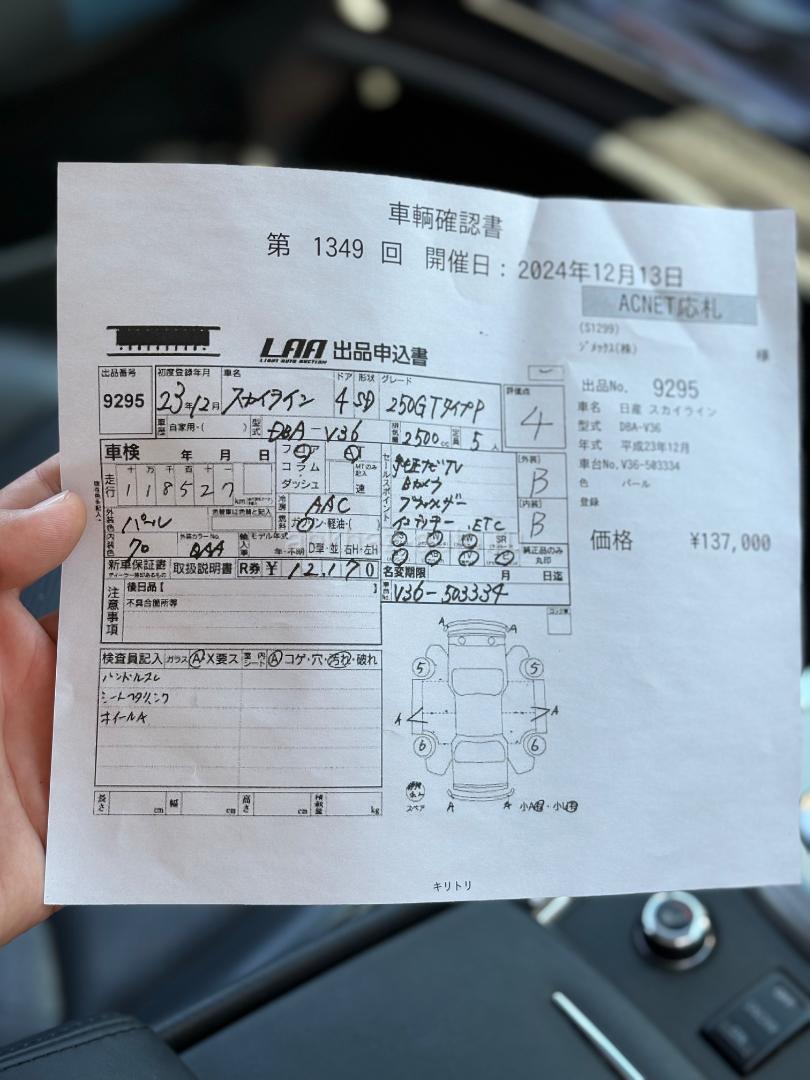 車輌確認書
第 1349 回 開催日：2024年12月13日
ACNET応札
(S1299)
ジメックス(株)
様
LAA 出品申込書
LIGHT AUTO AUCTION
出品番号 初度登録年月 車名 ドア 形状 グレード 評価点
9295 23年12月 スカイライン 4 SD 250GTタイプP 4
車歴 自家用・( ) 型式 DBA-V36 排気量 2500cc 定員 5人
出品No. 9295
車名 日産 スカイライン
型式 DBA-V36
年式 平成23年12月
車台No. V36-503334
色 パール
登録
価格 ¥137,000
車検 年 月 日
フロア AT
コラム
ダッシュ
MTのみ記入
速
走行
十 万 千 百 十 一
118527 km
セールスポイント
純正ナビTV
Bカメラ
プラズマ
インテリキー .ETC
[外装]
B
[内装]
B
冷房 AAC
燃料 ガソリン・軽油・( )
外装色 パール
色替車は元色と記入
内装色 70 外装カラーNo. QAA
輸入車 モデル年式 年・不明 D車・並 右H・左H
SR
純正品のみ丸印
新車保証書 取扱説明書 R券 ¥12,170
名変期限 月 日迄
車台No. V36-503334
注意事項
後日品【 】
不具合箇所等
検査員記入 ガラス A X要ス 室内シート A コゲ・穴・汚れ・破れ
ハンドルスレ
シートスリ、シワ
ホイールA
A A
5 5
A A
6 6
スペア A A 小A・小U
長さ cm 幅 cm 高さ cm 積載量 kg
キリトリ